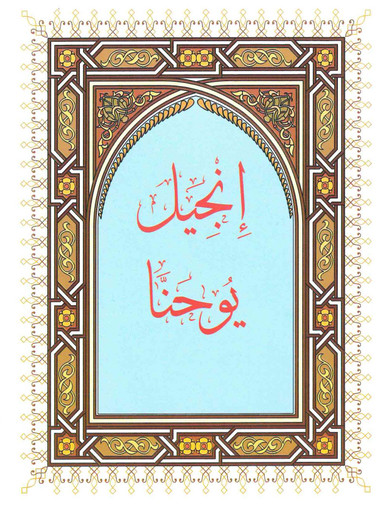 إِنْجِيل
يُوحَنَّا